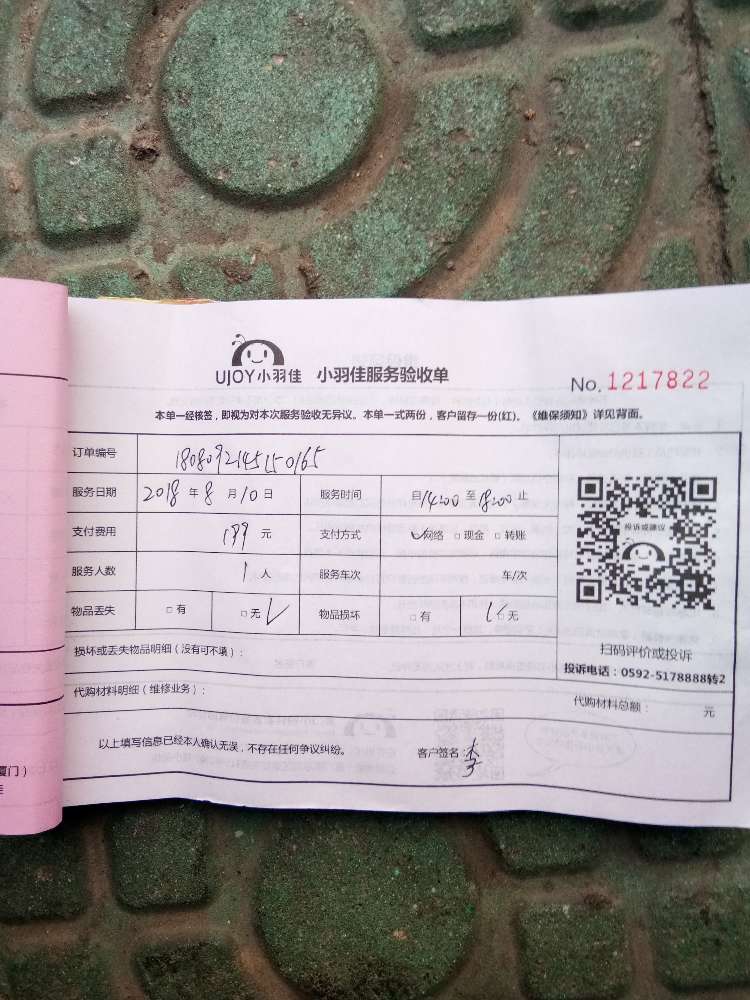 UJOY小羽佳 小羽佳服务验收单
No. 1217822
本单一经核签，即视为对本次服务验收无异议。本单一式两份，客户留存一份(红)。《维保须知》详见背面。
订单编号 180809214515 0165
服务日期 2018 年 8 月 10 日 服务时间 自 14:00 至 18:00 止
支付费用 199 元 支付方式 ✓网络 □现金 □转账
服务人数 1 人 服务车次 车/次
物品丢失 □有 □无 ✓ 物品损坏 □有 ✓□无
投诉或建议
扫码评价或投诉
投诉电话：0592-5178888转2
损坏或丢失物品明细（没有可不填）：
代购材料明细（维修业务）： 代购材料总额： 元
以上填写信息已经本人确认无误，不存在任何争议纠纷。 客户签名：李
厦门）